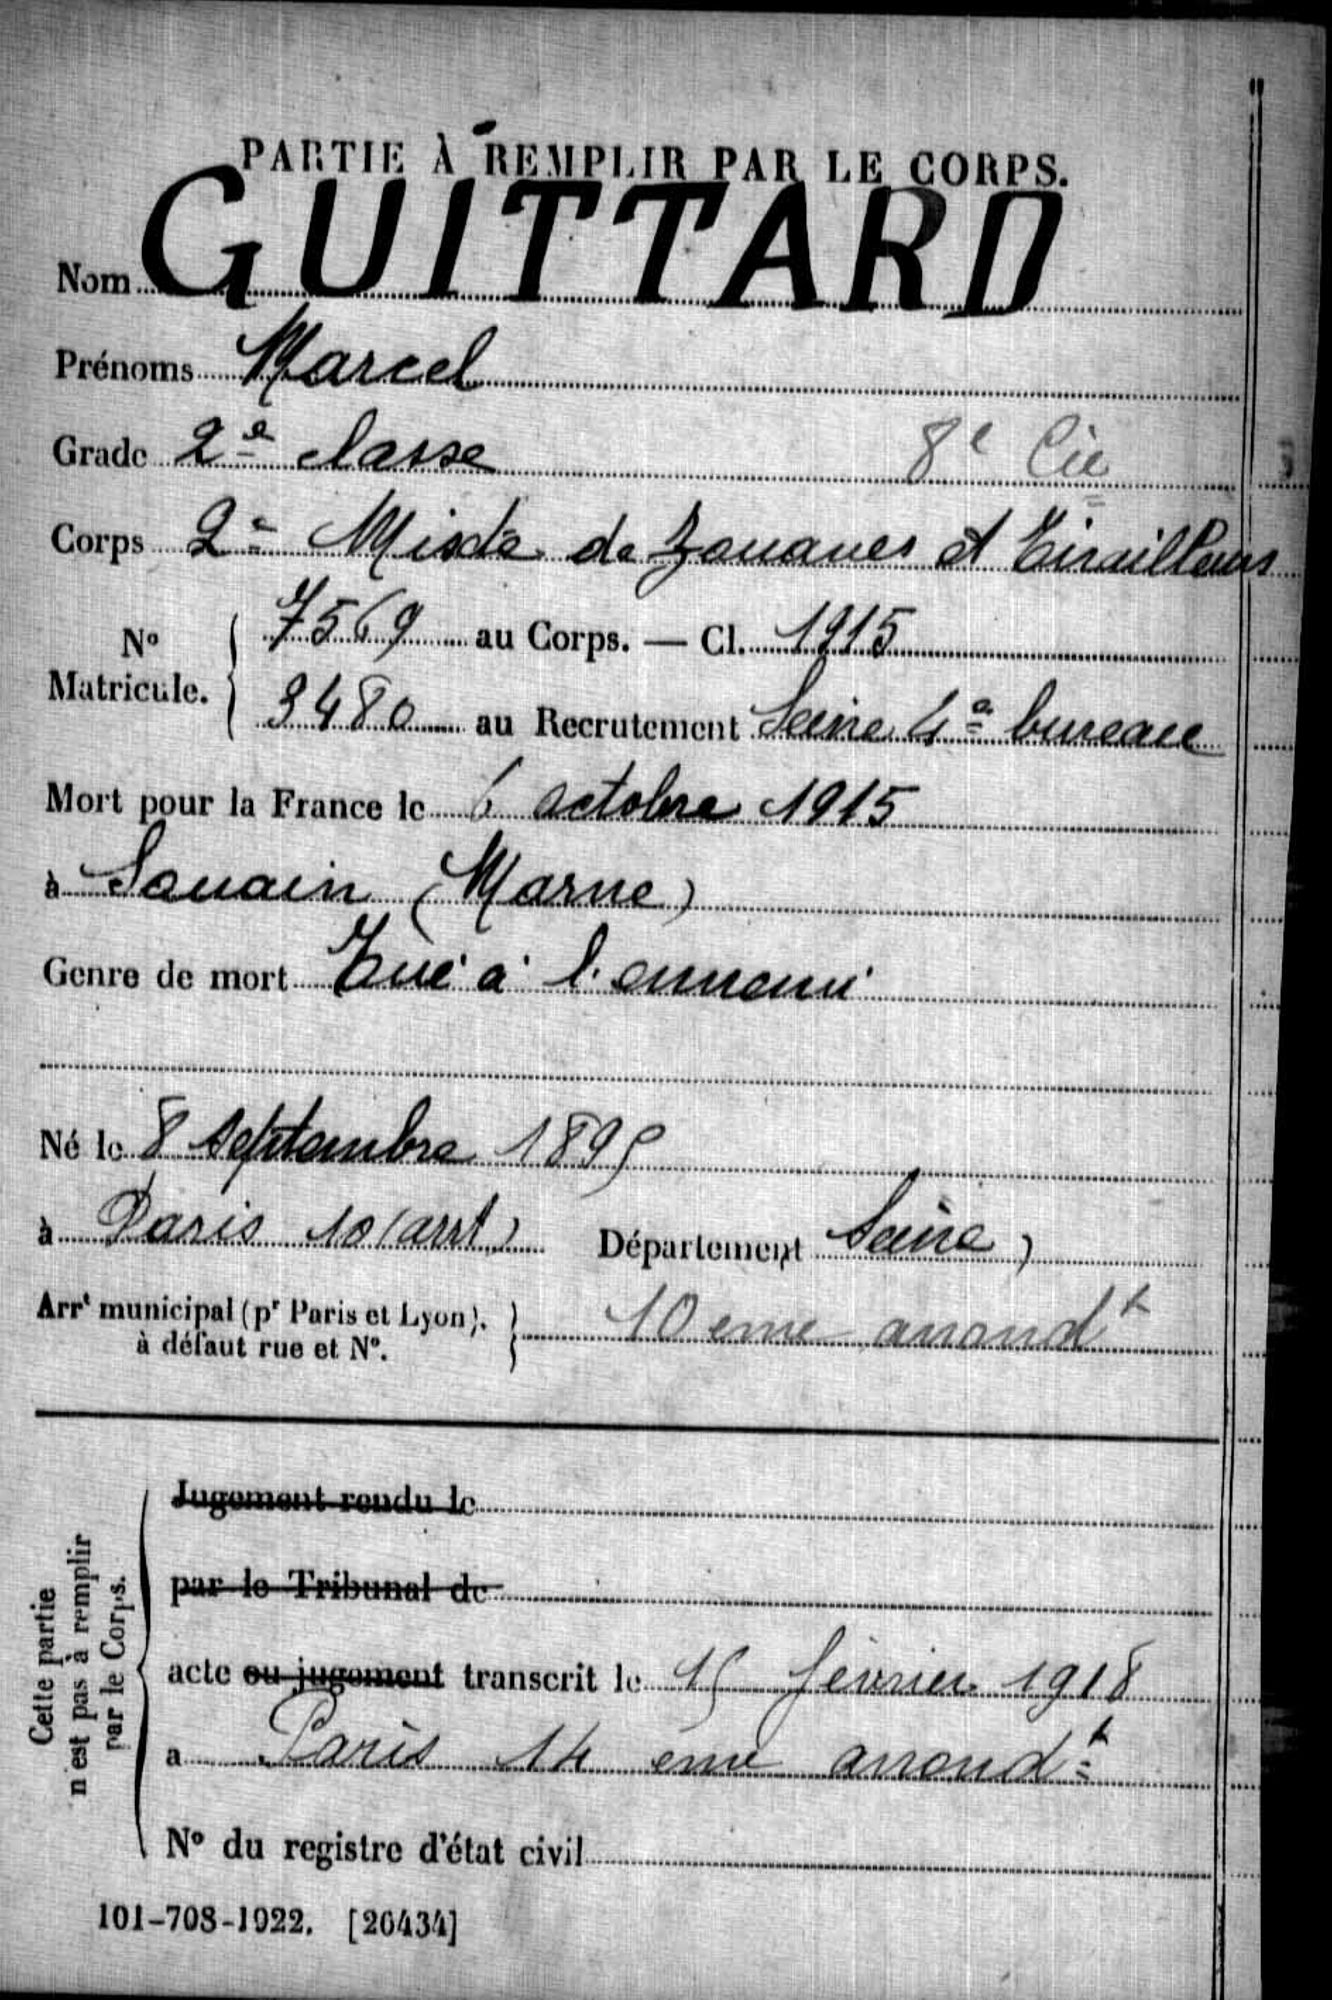 PARTIE À REMPLIR PAR LE CORPS.
Nom GUITTARD
Prénoms Marcel
Grade 2e classe 8e Cie
Corps 2e Mixte de Zouaves et Tirailleurs
No Matricule. 7569 au Corps. — Cl. 1915
3480 au Recrutement Seine 4e bureau
Mort pour la France le 6 octobre 1915
à Souain (Marne)
Genre de mort Tué à l'ennemi
Né le 8 septembre 1895
à Paris 10 (arrt) Département Seine
Arrt municipal (pr Paris et Lyon), à défaut rue et No. 10 eme arrondt
Cette partie n'est pas à remplir par le Corps.
Jugement rendu le
par le Tribunal de
acte ou jugement transcrit le 15 février 1918
a Paris 14 eme arrondt
No du registre d'état civil
101-708-1922. [26434]